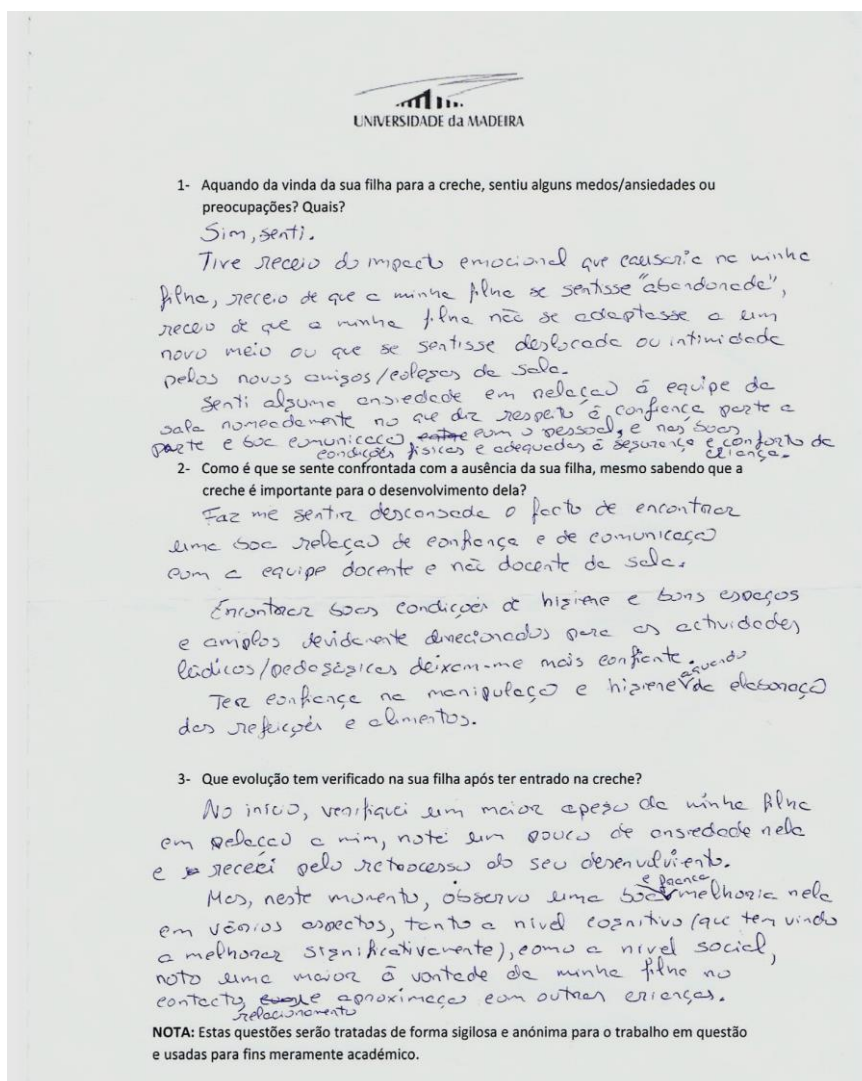 UNIVERSIDADE da MADEIRA
1- Aquando da vinda da sua filha para a creche, sentiu alguns medos/ansiedades ou
preocupações? Quais?
Sim, senti.
Tive receio do impacto emocional que causaria na minha
filha, receio de que a minha filha se sentisse "abandonada",
receio de que a minha filha não se adaptasse a um
novo meio ou que se sentisse deslocada ou intimidada
pelos novos amigos/colegas da sala.
Senti alguma ansiedade em relação á equipe da
sala nomeadamente no que diz respeito á confiança parte a
parte e boa comunicação, com o pessoal, e nas boas
condições físicas e adequadas á segurança e conforto da
criança.
2- Como é que se sente confrontada com a ausência da sua filha, mesmo sabendo que a
creche é importante para o desenvolvimento dela?
Faz me sentir descansada o facto de encontrar
uma boa relação de confiança e de comunicação
com a equipe docente e não docente da sala.
Encontrar boas condições de higiene e bons espaços
e amplos devidamente direcionados para as actividades
lúdicos/pedagógicas deixam-me mais confiante.
Ter confiança na manipulação e higiene aquando da elaboração
das refeições e alimentos.
3- Que evolução tem verificado na sua filha após ter entrado na creche?
No início, verifiquei um maior apego da minha filha
em relação a mim, notei um pouco de ansiedade nela
e receei pelo retrocesso do seu desenvolviento.
Mas, neste momento, observo uma boa melhoria nela
em vários aspectos, tanto a nível cognitivo (que tem vindo
a melhorar significativamente), como a nível social,
noto uma maior á vontade da minha filha no
contacto, relacionamento e aproximação com outras crianças.
NOTA: Estas questões serão tratadas de forma sigilosa e anónima para o trabalho em questão
e usadas para fins meramente académico.